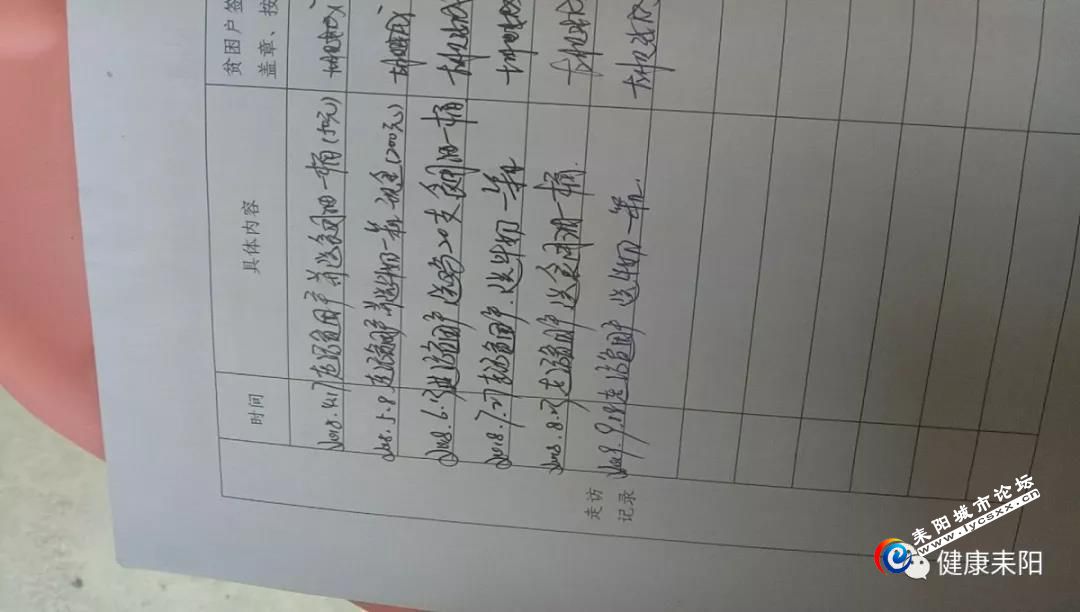 时间 具体内容 贫困户签
盖章、按
2018.4.17 走访贫困户并送食用油一桶(50元)
2018.5.8 走访贫困户并送牛奶一箱 现金(200元)
2018.6.5 走访贫困户 送鸡20支 食用油一桶
2018.7.21 走访贫困户.送牛奶一箱
走访贫困户 送食用油一桶.
9.18 走访贫困户 送牛奶一箱.
走访
记录
耒阳城市论坛
www.lycsxx.cn
健康耒阳